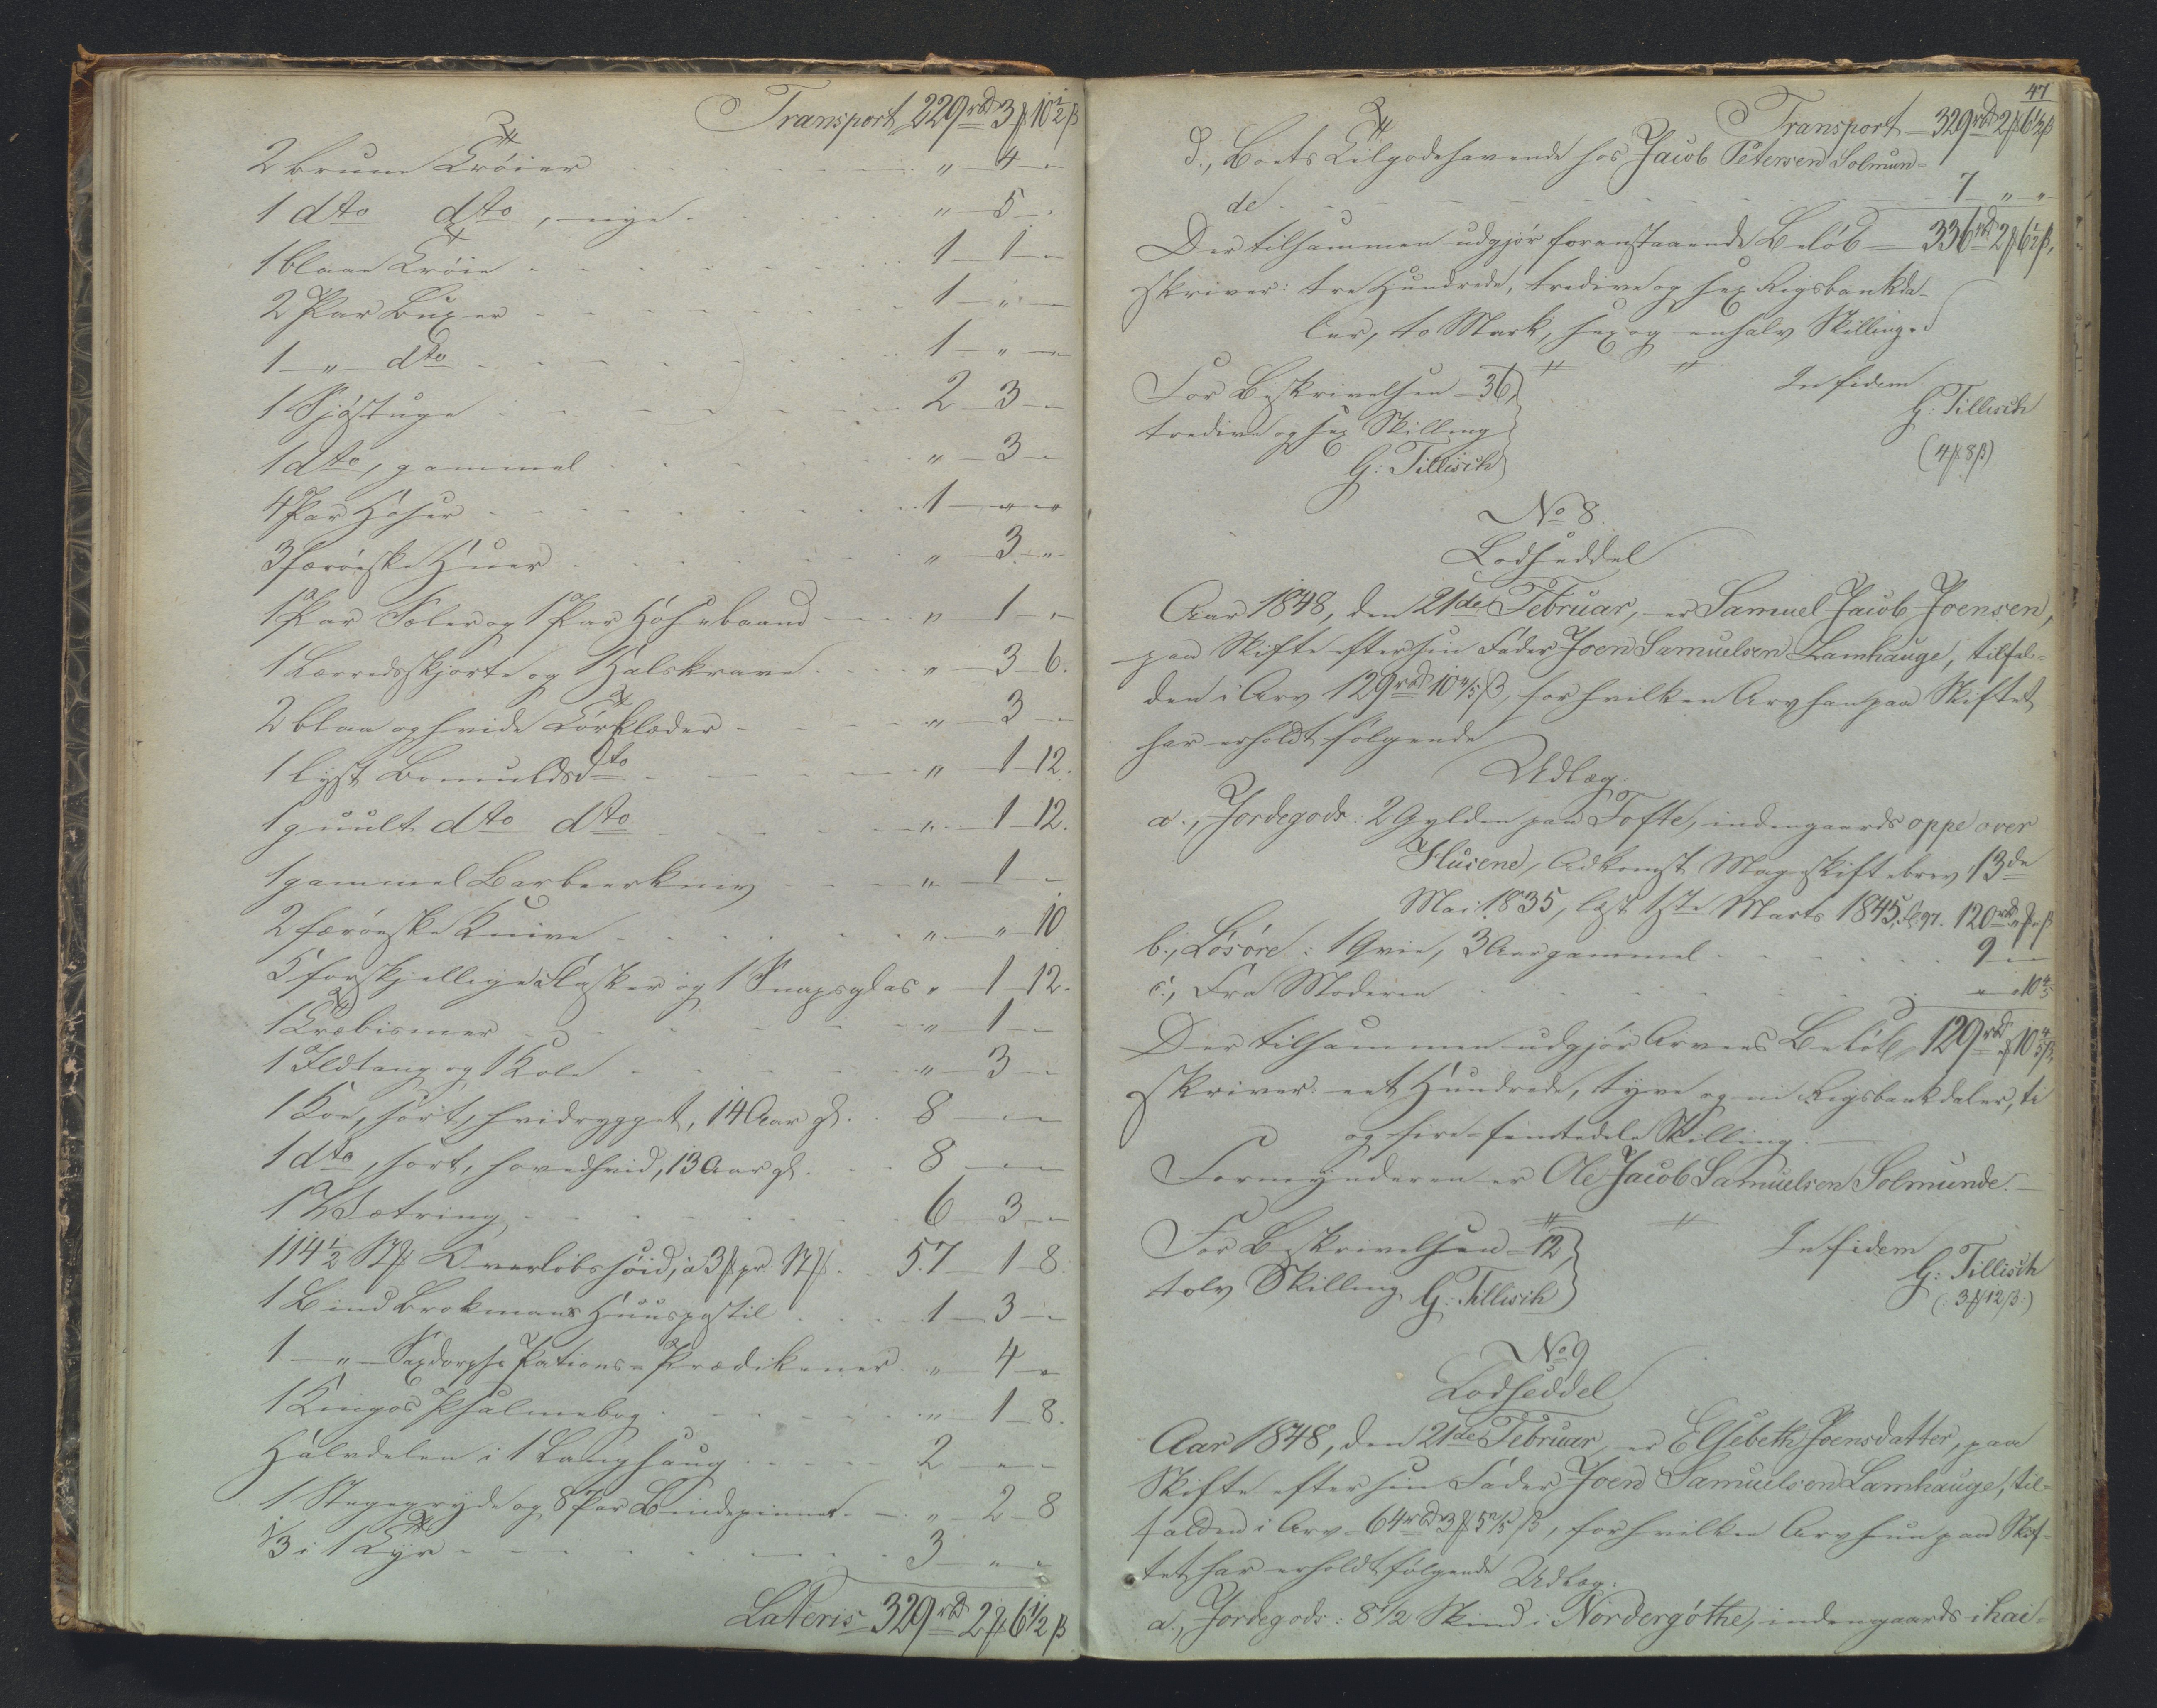 Transport 229 rbd 3 ℳ 10 1/2 β
2 brune Trøier " 4 "
1 dto dto, nye " 5 "
1 blaae Trøie 1 1 "
2 Par Buxer 1 " "
1 " dto 1 " "
1 Sjøstuge 2 3 "
1 dto, gammel " 3 "
4 Par Hoser 1 " "
3 færøiske Huer " 3 "
1 Par Seler og 1 Par Hosebaand " 1 "
1 Lærredsskjorte og 1 Halskrave " 3 6.
2 blaa og hvide Tørklæder " 3 "
1 lyst Bomulds dto " 1 12.
1 guult dto dto " 1 12.
1 gammel Barbeerkniv " 1 "
2 færøiske Knive " " 10
5 forskjellige Flasker og 1 Snapsglas " 1 12.
1 Træbismer " 1 "
1 Ildtang og 1 Kole " 3 "
1 Koe, sort, hvidrygget, 14 Aar gl. 8 " "
1 dto, sort, hovedhvid, 13 Aar gl. 8 " "
1 6 3 "
114 1/2 Overløbsjord, a 3 ℳ pr. 57 1 8.
1 Bind Brokmans Huuspostil 1 3 "
1 " Saxdorphs Pations-Prædikener " 4 "
1 Kingos Psalmebog " 1 8.
Halvdelen i 1 2 " "
1 og 8 Par Bindepinner " 2 8
1/3 i 1 Tyr 3 " "
Lateris 329 rbd 2 ℳ 6 1/2 β
47
Transport 329 rbd 2 ℳ 6 1/2 β
d., Boets Tilgodehavende hos Jacob Petersen Solmun-
de 7 " "
Der tilsammen udgjør foranstaaende Beløb 336 rbd 2 ℳ 6 1/2 β,
skriver: tre Hundrede, tredive og sex Rigsbankda-
ler, to Mark, sex og en halv Skilling.
For Beskrivelsen 36,
tredive og sex Skilling
G: Tillisch
In fidem
G: Tillisch
(4 ℳ 8 β)
No 8.
Lodseddel
Aar 1848, den 21de Februar, er Samuel Jacob Joensen,
paa Skifte efter sin Fader Joen Samuelsen Lamhauge, tilfal-
den i Arv 129 rbd 10 4/5 β, for hvilken Arv han paa Skiftet
har erholdt følgende
Udlæg.
a., Jordegods: 2 Gylden paa Tofte, indengaards oppe over
Husene, Adkomst Mageskiftebrev 13de
Mai 1835, læst 1ste Marts 1845, 120 rbd " ℳ " β
b., Løsøre: 1 Qvie, 3 Aar gammel 9 " "
c., Fra Moderen " " 10 4/5
Der tilsammen udgjør Arvens Beløb 129 rbd " ℳ 10 4/5 β,
skriver: eet Hundrede, tyve og ni Rigsbankdaler, ti
og fire-femtedele Skilling.
Formynderen er Ole Jacob Samuelsen Solmunde.
For Beskrivelsen 12,
tolv Skilling G: Tillisch
In fidem
G: Tillisch
(: 3 ℳ 12 β :)
No 9
Lodseddel
Aar 1848, den 21de Februar, er Elsebeth Joensdatter, paa
Skifte efter sin Fader Joen Samuelsen Lamhauge, til-
falden i Arv 64 rbd 3 ℳ 5 2/5 β, for hvilken Arv hun paa Skif-
tet har erholdt følgende Udlæg.
a., Jordegods: 8 1/2 Skind i Nordergøthe, indengaards i hai-